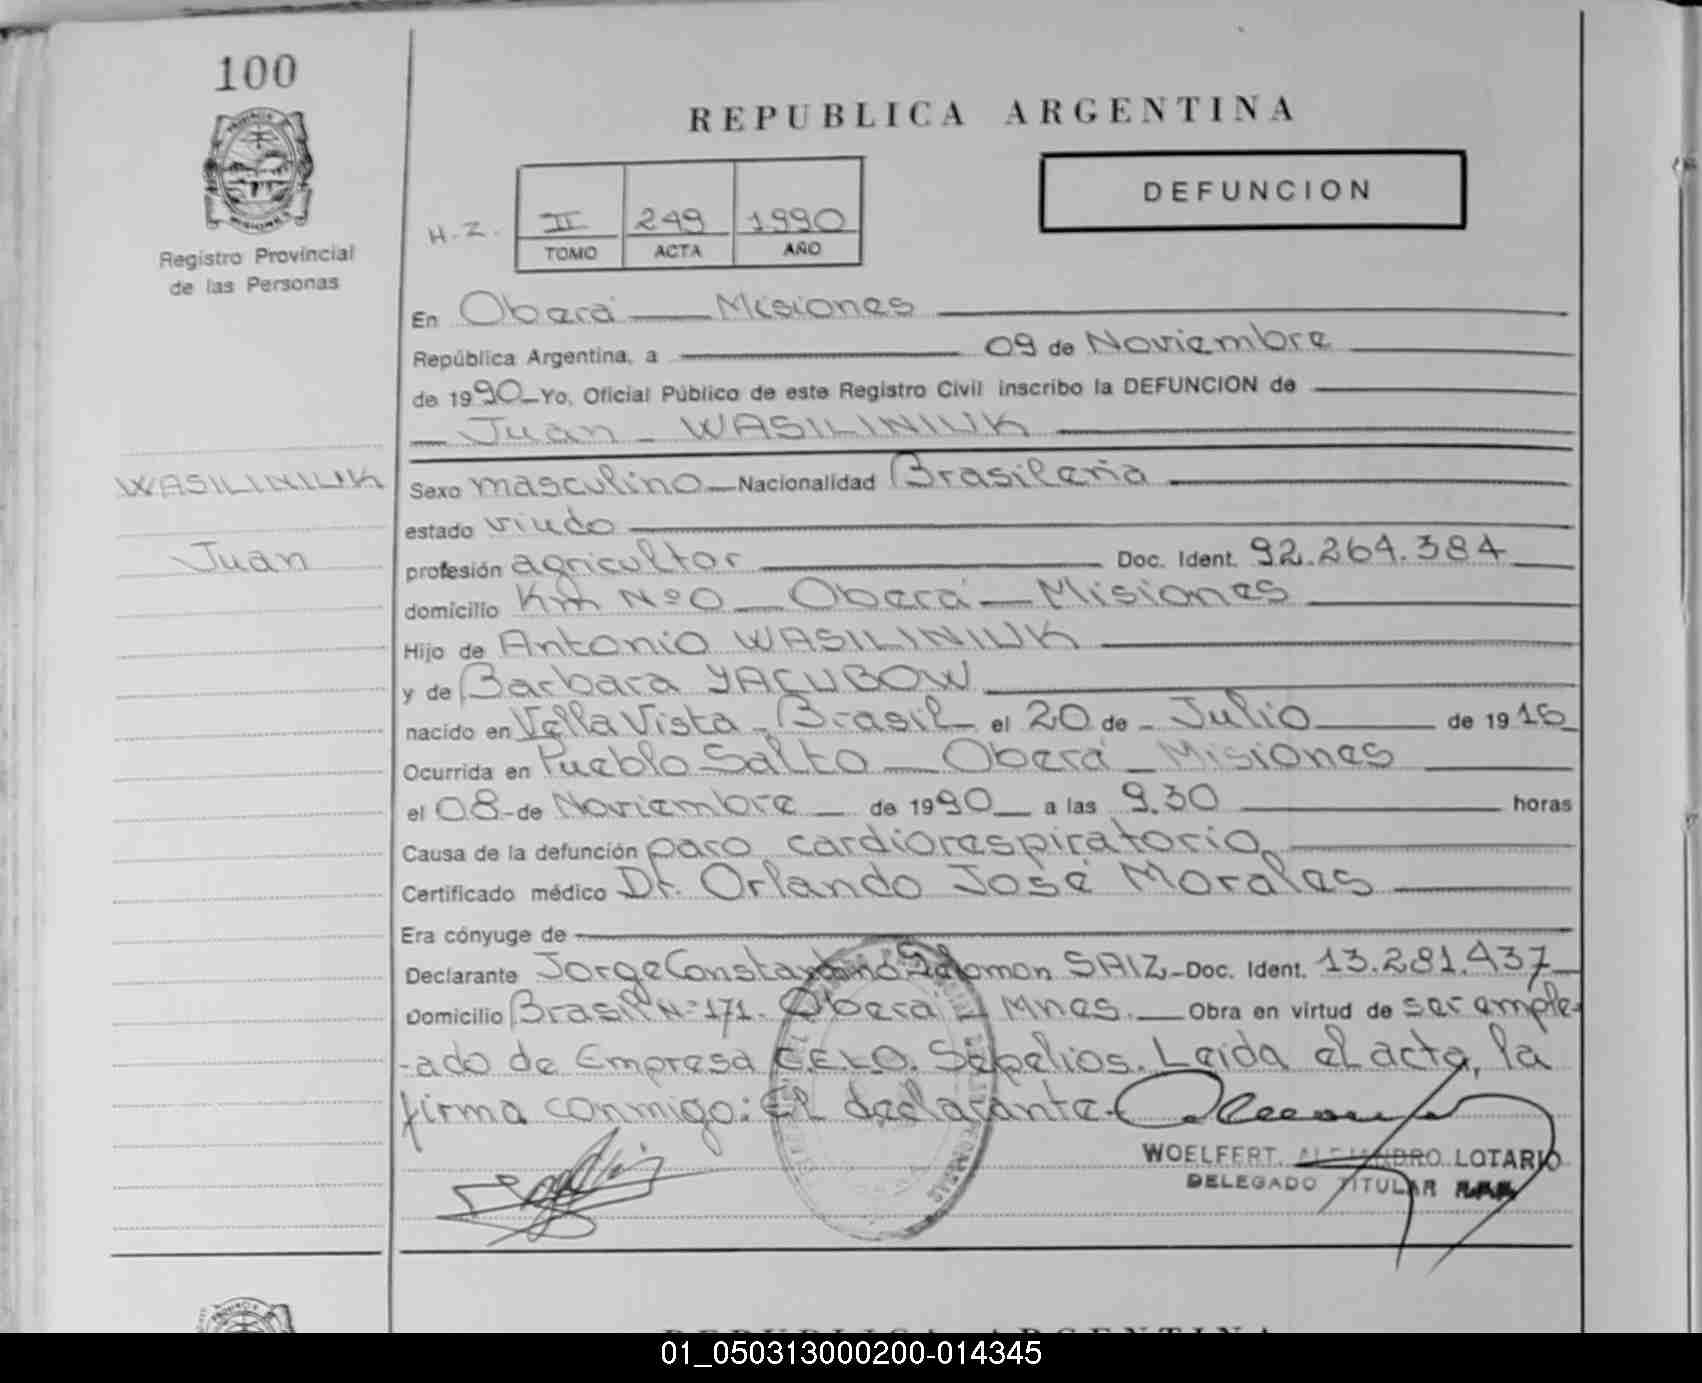 100
REPUBLICA ARGENTINA
DEFUNCION
H.Z. II 249 1990
TOMO ACTA AÑO
Registro Provincial
de las Personas
En Oberá Misiones
República Argentina, a 09 de Noviembre
de 1990 Yo, Oficial Público de este Registro Civil inscribo la DEFUNCION de
Juan WASILINIUK
WASILINIUK
Juan
Sexo masculino Nacionalidad Brasileña
estado viudo
profesión agricultor Doc. Ident. 92.264.384
domicilio Km Nº0 Oberá Misiones
Hijo de Antonio WASILINIUK
y de Barbara YACUBOW
nacido en Vella Vista Brasil el 20 de Julio de 1916
Ocurrida en Pueblo Salto Oberá Misiones
el 08 de Noviembre de 1990 a las 9.30 horas
Causa de la defunción paro cardiorespiratorio
Certificado médico Dr. Orlando José Morales
Era cónyuge de
Declarante Jorge Constantino Salomon SAIZ Doc. Ident. 13.281.437
Domicilio Brasil Nº 171. Oberá Mnes. Obra en virtud de ser emple-
-ado de Empresa C.E.L.O. Sepelios. Leida el acta, la
firma conmigo: El declarante.
WOELFERT, ALEJANDRO LOTARIO
DELEGADO TITULAR
REPUBLICA ARGENTINA
01_050313000200-014345